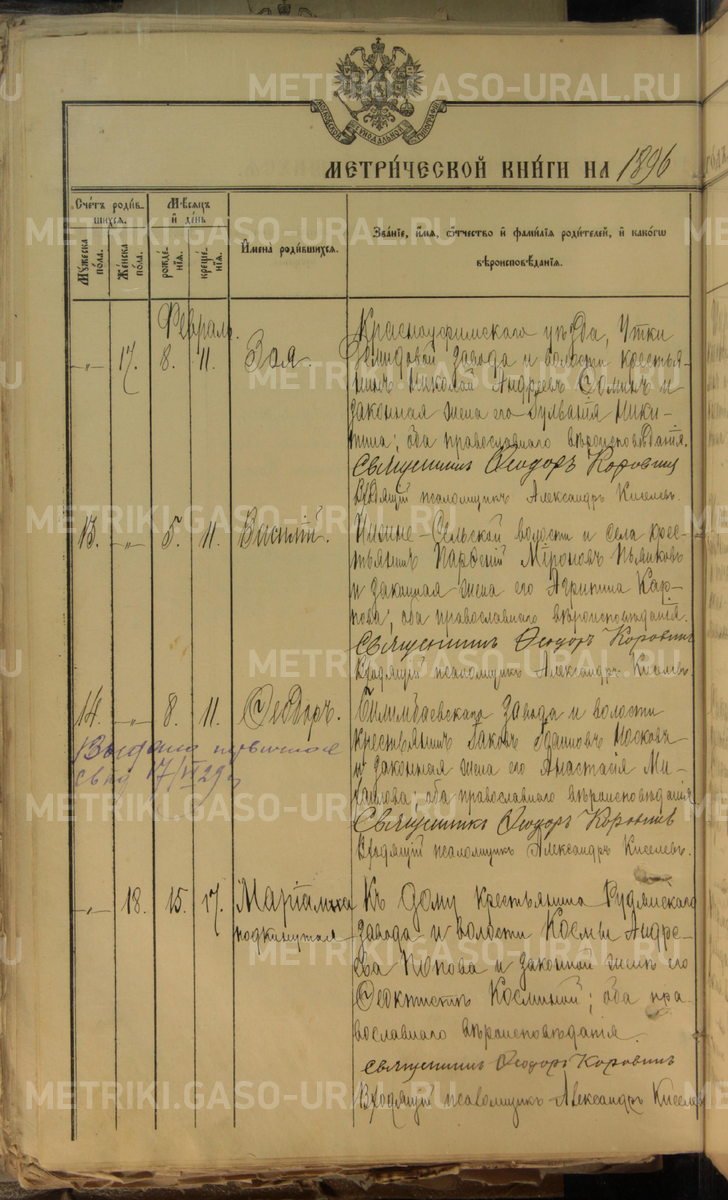 МЕТРИ́ЧЕСКОЙ КНИ́ГИ НА 1896
Сче́тъ роди́вшихся.
Му́жеска по́ла.
Же́нска по́ла.
Мѣ́сяцъ и де́нь
рожде́нія.
креще́нія.
И҆мена̀ роди́вшихся.
Зва́ніе, и҆́мя, ѻ҆́тчество и҆ фами́лія роди́телей, и҆ како́гѡ
вѣроисповѣ́данія.
Февраль.
-„- 17. 8. 11. Зоя.
Красноуфимскаго уѣзда, Утки
Демидовой завода и волости крестья-
нинъ Николай Андреевъ Соминъ и
законная жена его Ники-
тина; оба православнаго вѣроисповѣданія.
Священникъ Ѳеодоръ Коровинъ
псаломщикъ Александръ Киселевъ.
13. -„- 5. 11. Василій.
Нижне-Сельской волости и села крес-
тьянинъ Парѳеній Мироновъ
и законная жена его Агрипина Кар-
пова; оба православнаго вѣроисповѣданія.
Священникъ Ѳеодоръ Коровинъ
псаломщикъ Александръ Киселевъ.
14. -„- 8. 11. Ѳеодоръ.
Выдано
17/VI 29 г
Билимбаевскаго завода и волости
крестьянинъ Іаковъ Носковъ
и законная жена его Анастасія Ми-
хаилова; оба православнаго вѣроисповѣданія
Священникъ Ѳеодоръ Коровинъ
псаломщикъ Александръ Киселевъ.
-„- 18. 15. 17. Маріамна
подкинутая
Къ дому крестьянина Рудянскаго
завода и волости Космы Андре-
ева Попова и законной женѣ его
Ѳеоктистѣ Косминой; оба пра-
вославнаго вѣроисповѣданія.
Священникъ Ѳеодоръ Коровинъ
псаломщикъ Александръ Киселевъ
METRIKI.GASO-URAL.RU